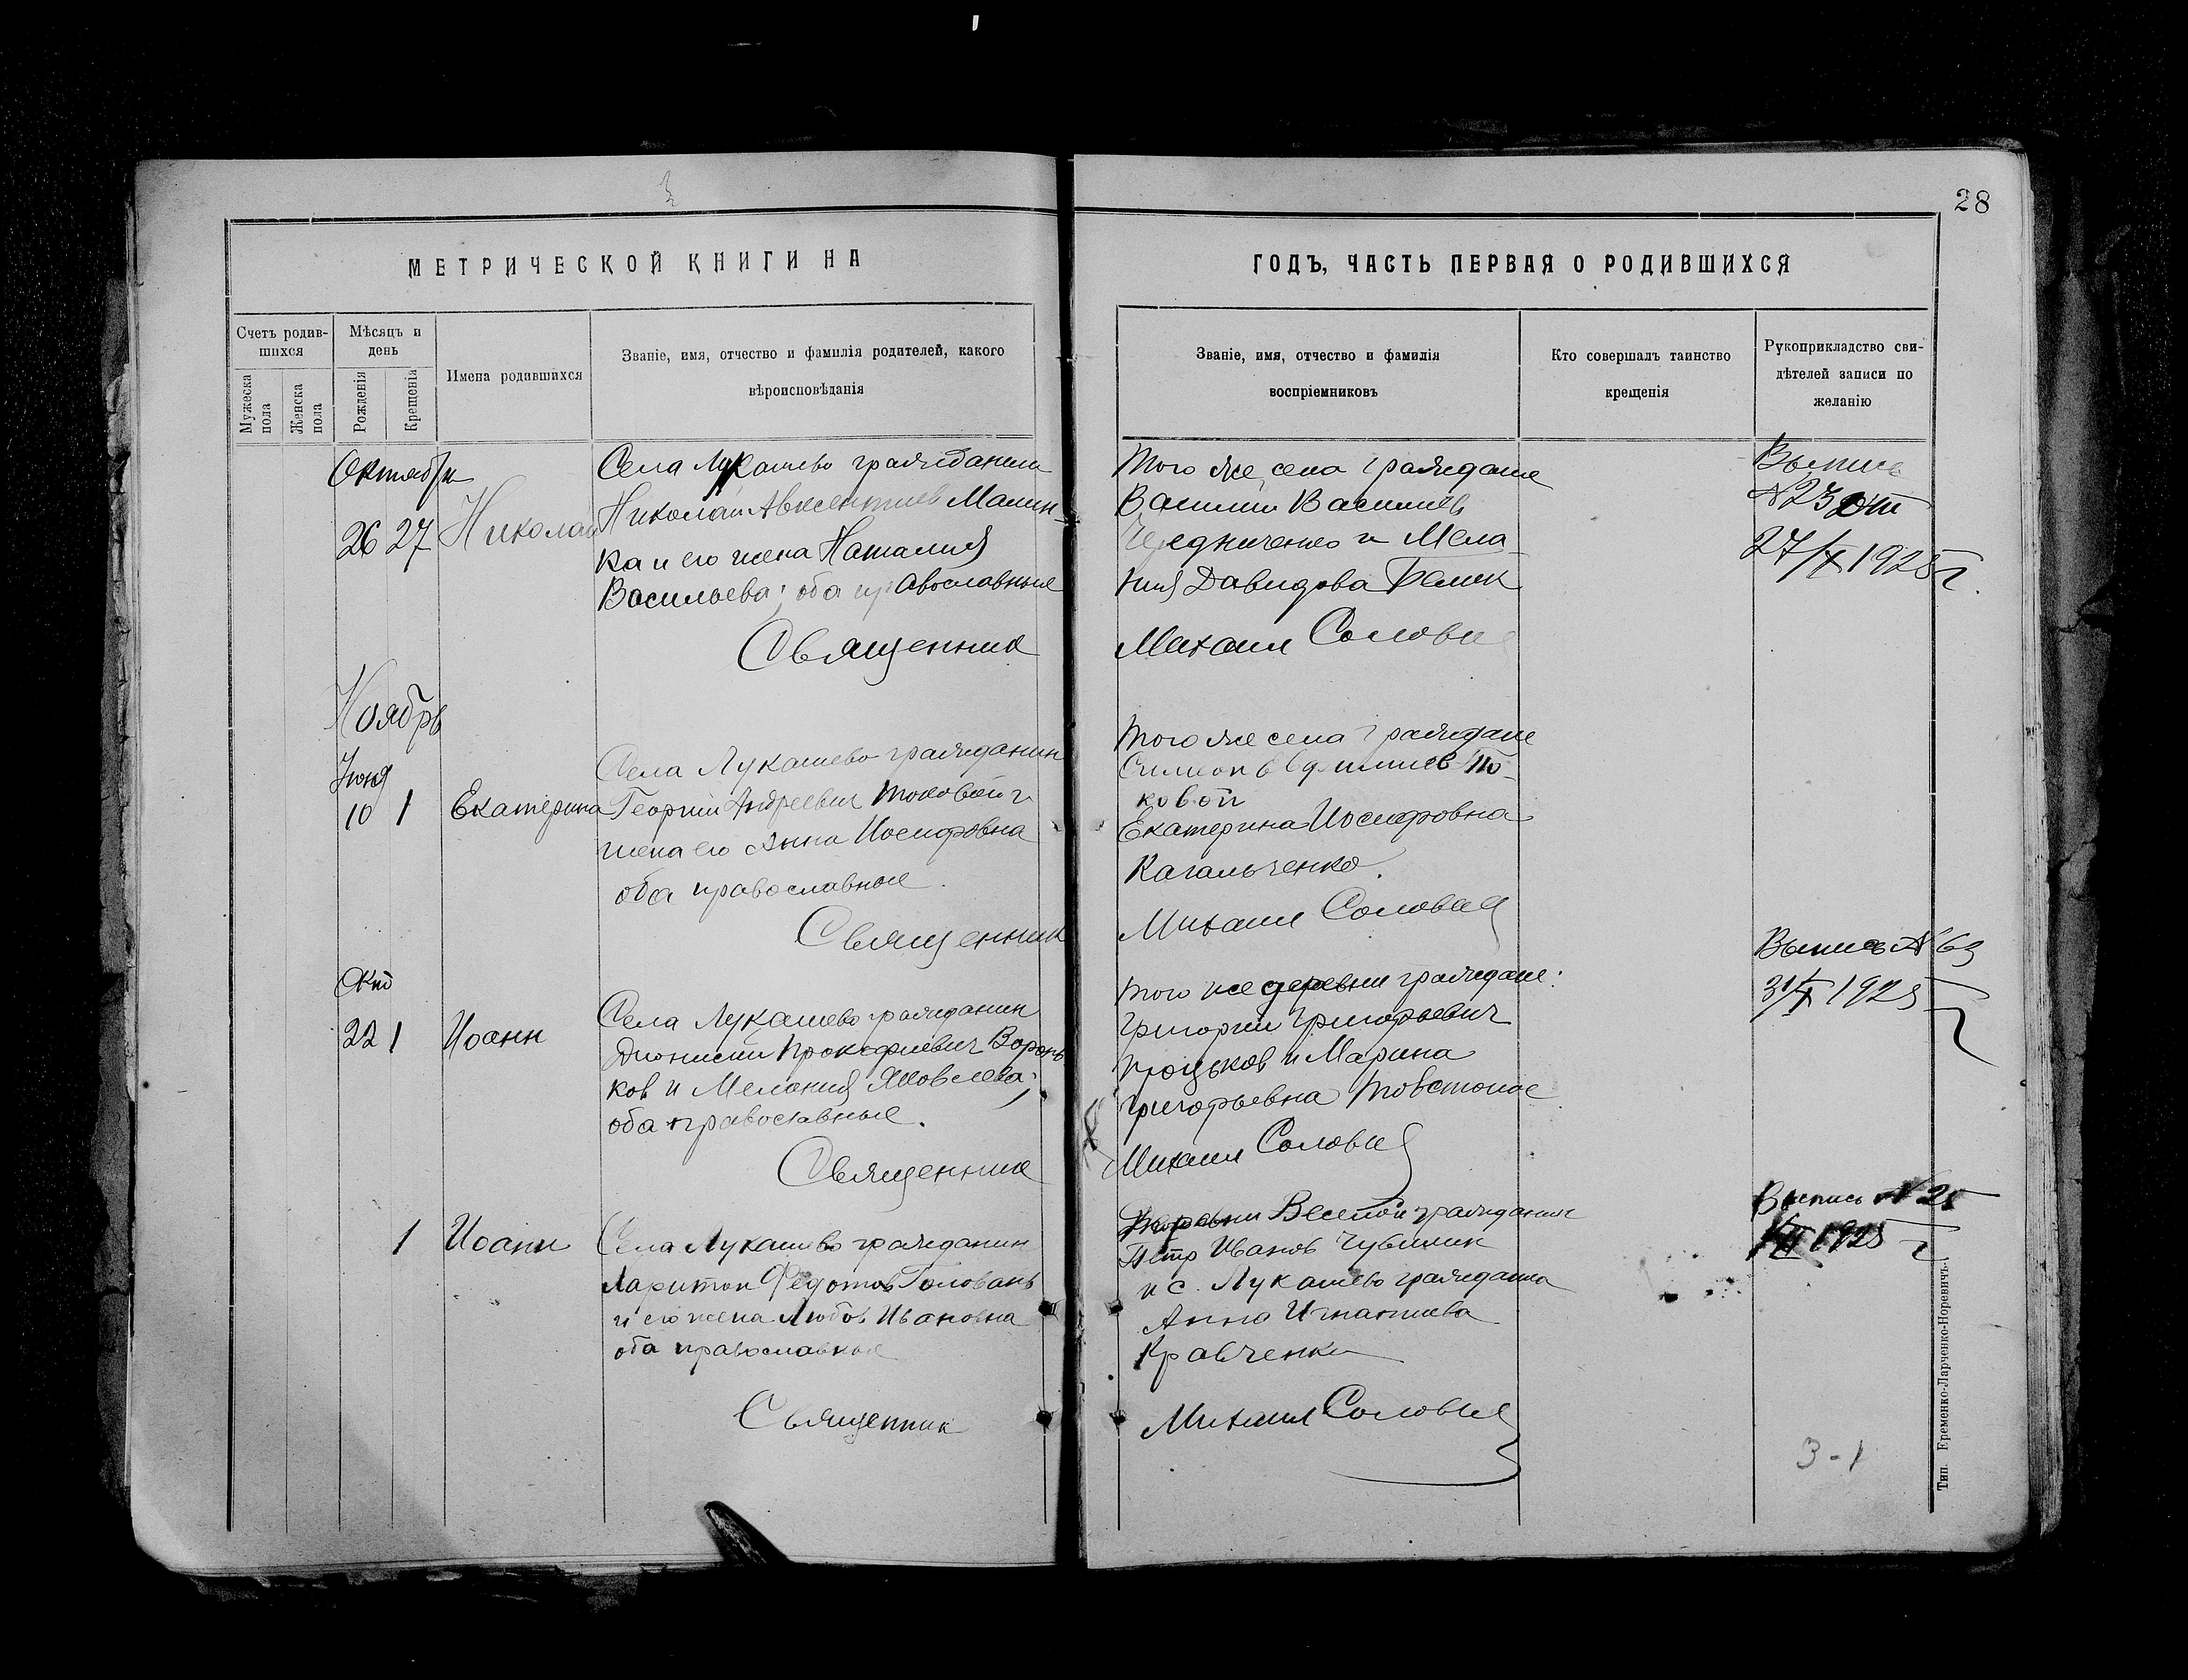 28
МЕТРИЧЕСКОЙ КНИГИ НА
ГОДЪ, ЧАСТЬ ПЕРВАЯ О РОДИВШИХСЯ
Счетъ родив-
шихся
Мужеска
пола
Женска
пола
Мѣсяцъ и
день
Рожденія
Крещенія
Имена родившихся
Званіе, имя, отчество и фамилія родителей, какого
вѣроисповѣданія
Званіе, имя, отчество и фамилія
воспріемниковъ
Кто совершалъ таинство
крещенія
Рукоприкладство сви-
дѣтелей записи по
желанію
Октября
26 27 Николай
Села Лукашево гражданин
Николай Авксентиев Малин-
ка и его жена Наталия
Васильева; оба православные
Священник
Того же села граждане
Василий Васильев
Чередниченко и Мела-
ния Давидова Белик
Михаил Соловий
Выпись
№ 23 от
27/X 1925 г.
Ноябрь
Июня
10 1 Екатерина
Села Лукашево гражданин
Георгий Андреевич Токовой и
жена его Анна Иосифовна
оба православные.
Священник
Того же села граждане
Симеон То-
ковой
Екатерина Иосифовна
Кагальченко.
Михаил Соловий
Окт
22 1 Иоанн
Села Лукашево гражданин
Дионисий Прокофиевич Воронь
ков и Мелания Яковлева;
оба православные.
Священник
Того же деревни граждане:
Григорий Григорьевич
и Марина
Григорьевна Товстоног
Михаил Соловий
Выпись №
31/X 1925 г
1 Иоанн
Села Лукашево гражданин
Харитон Федотов Головань
и его жена Любовь Ивановна
оба православные
Священник
Деревни Веселой гражданин
Петр Иванов
и с. Лукашево гражданка
Анна Игнатиева
Кравченко
Михаил Соловий
Выпись № 25
1925 г
3-1
Тип. Еременко-Ларченко-Норевичъ.